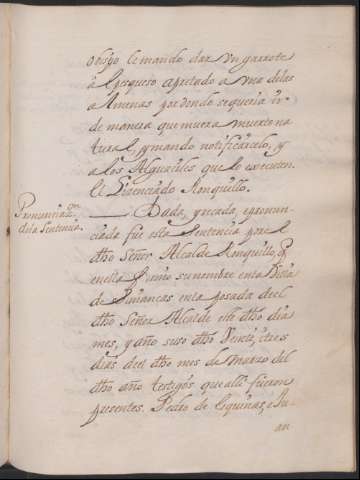 obispo le mando dar un garrote
al pesqueso apretado a una delas
almenas por donde se queria ir
de manera que muera muerte na
tural, y mando notificarselo, y
a los Alguaciles que lo executen
el Licenciado Ronquillo.
Pronunciaz.on
dela Sentencia.
Dada, y rezada, e pronun-
ciada fue esta Sentencia por el
dho Señor Alcalde Ronquillo, q
en ella firmo su nombre en la Villa
de Simancas en la posada del
dho Señor Alcalde este dho dia
mes, y año suso dho Veinti, itres
dias del dho mes de Marzo del
dho año testigos que alli fueron
presentes. Pedro de Equinas, e Ju-
an